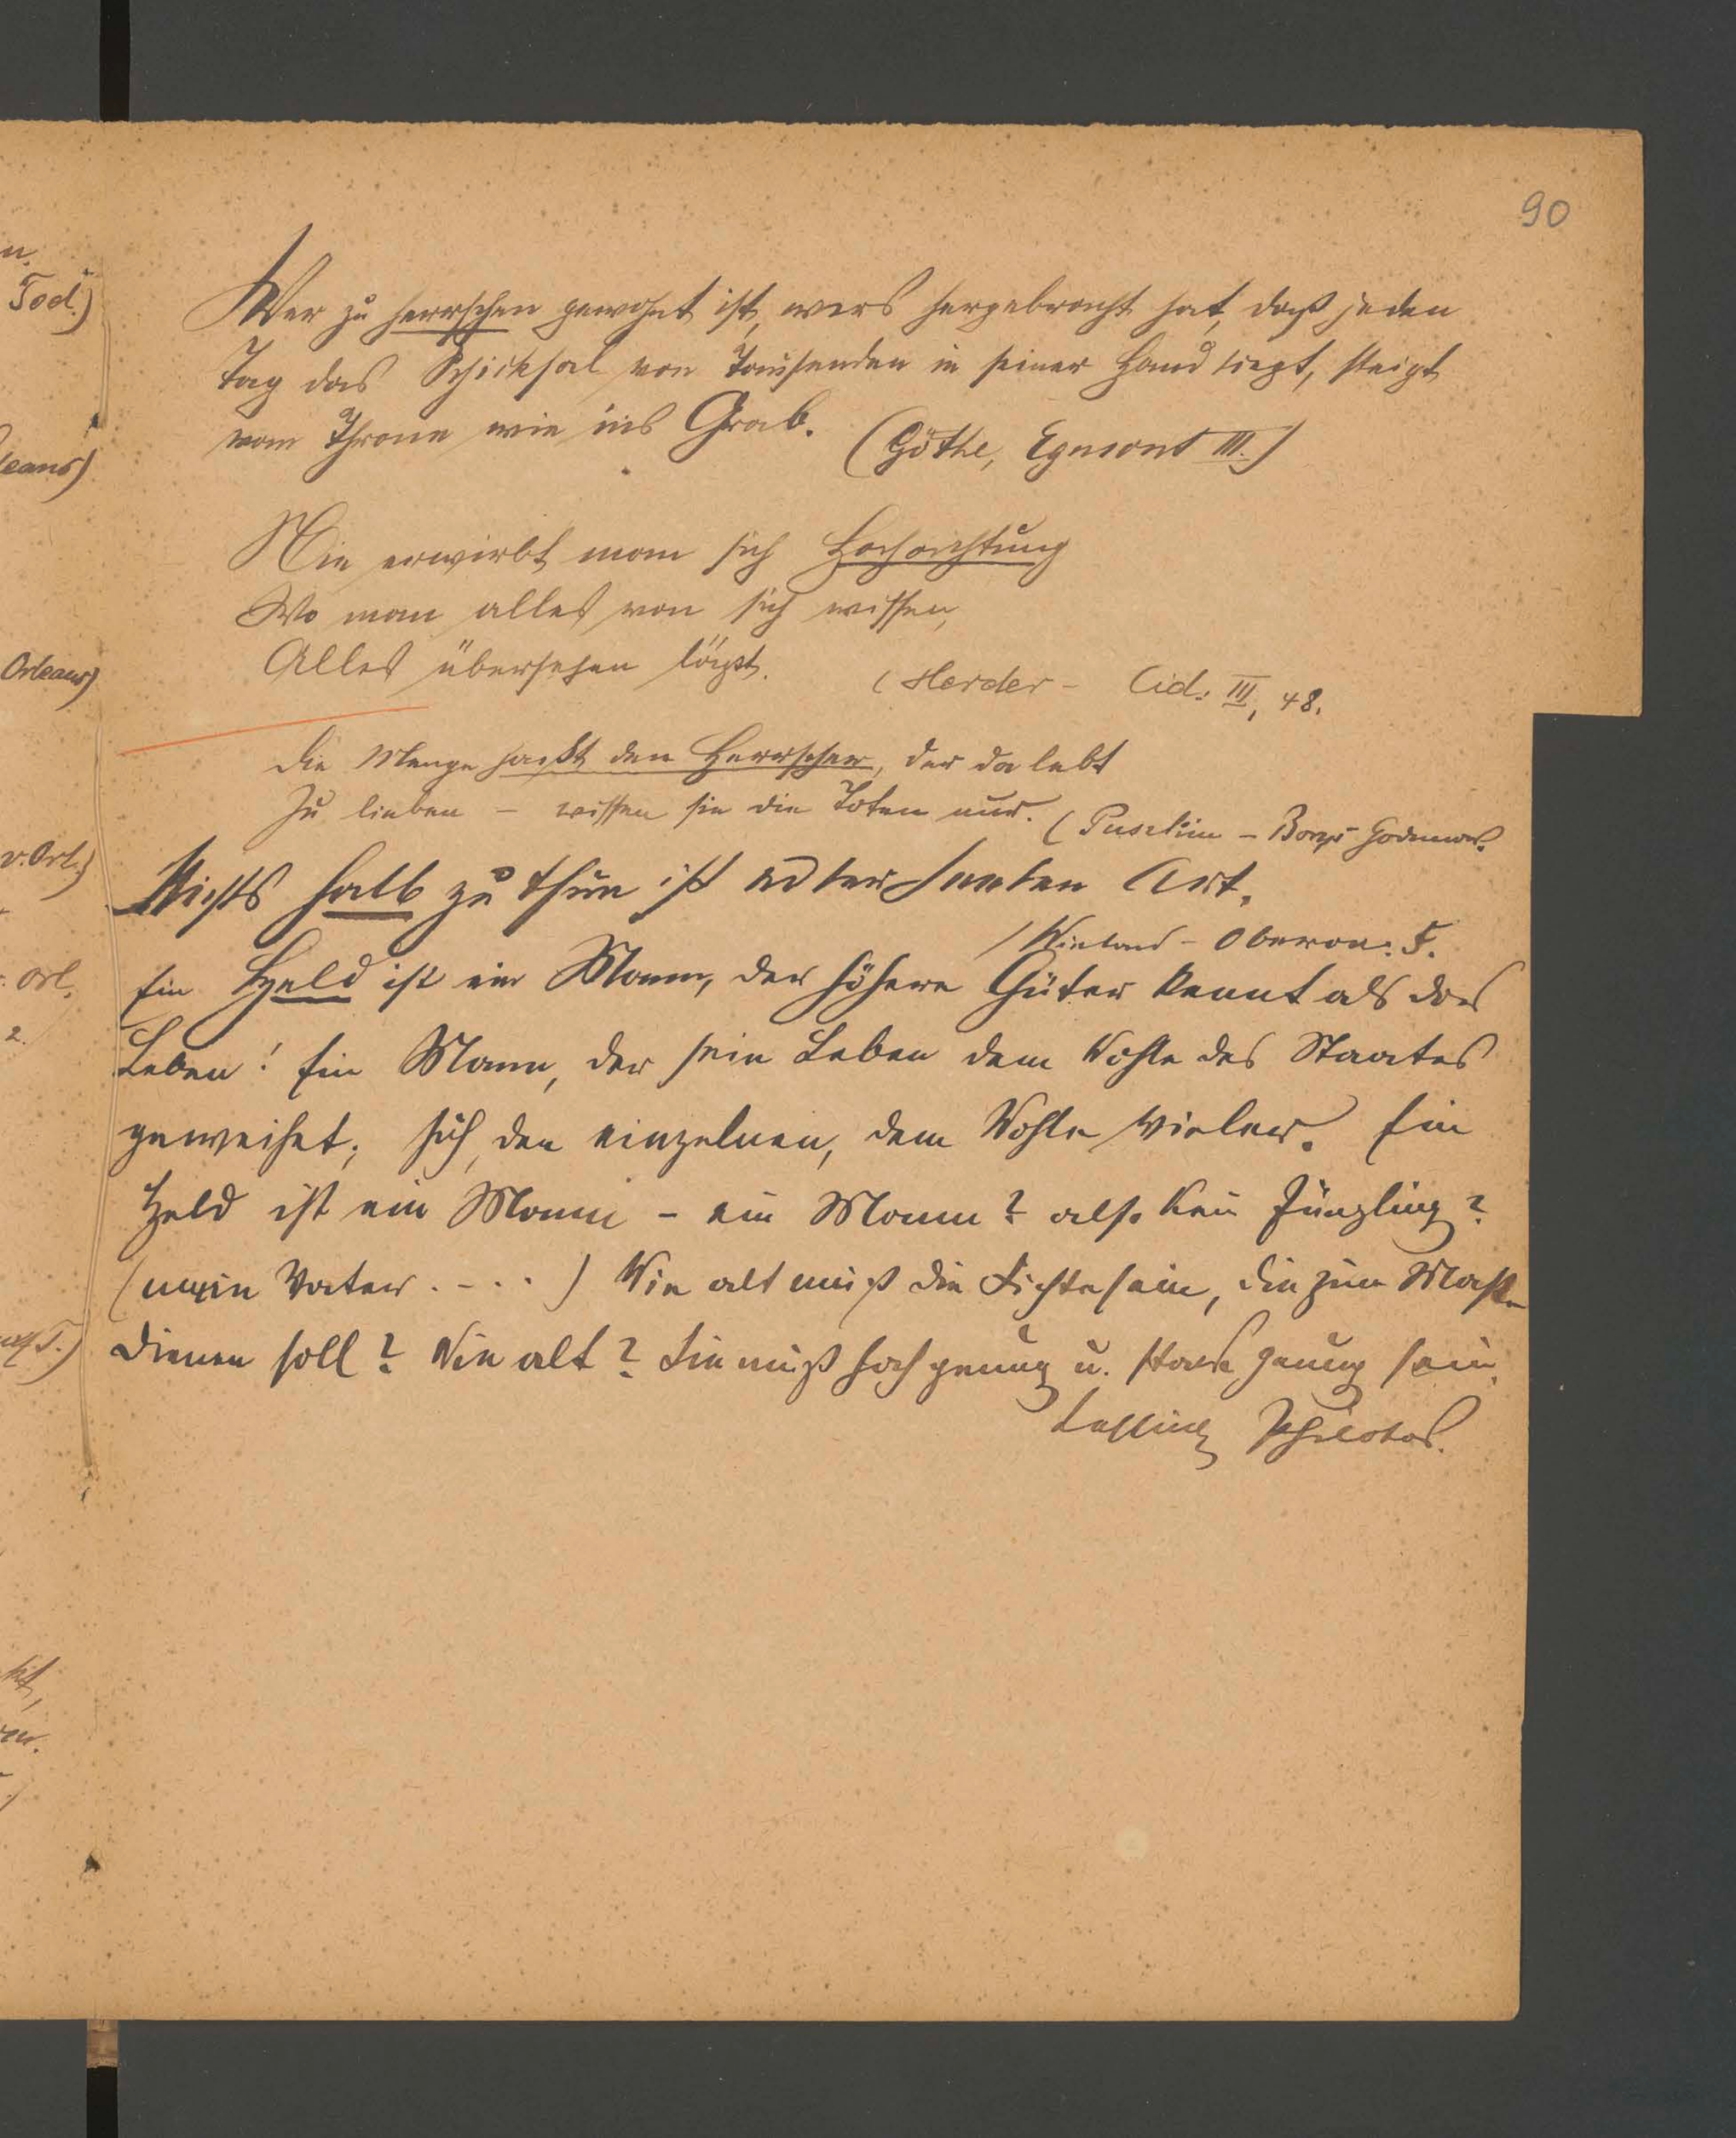 90
Wer zu herrschen gewohnt ist, wers hergebracht hat, daß jeden
Tag das Schicksal von Tausenden in seiner Hand liegt, steigt
vom Throne wie ins Grab. (Göthe, Egmont III.)
Nie erwirbt man sich Hochachtung
Wo man alles von sich wissen,
Alles übersehen läßt.
(Herder - Cid: III, 48.
Die Menge haßt den Herrscher, der da lebt
Zu lieben – wissen sie die Toten nur. (Puschkin - Borys Godunow.
Nichts halb zu thun ist edler Seelen Art.
(Wieland - Oberon: 5.
Ein Held ist ein Mann, der höhere Güter kennt als das
Leben! Ein Mann, der sein Leben dem Wohle des Staates
geweihet; sich, den einzelnen, dem Wohle vieler. Ein
Held ist ein Mann - ein Mann? also kein Jüngling?
(mein Vater . - . . ) Wie alt muß die Fichte sein, die zum Maste
dienen soll? Wie alt? Sie muß hoch genug u. stark genug sein.
Lessing Philotas.
n.
Tod.)
leans)
Orleans)
v. Orl.)
Orl.
2.